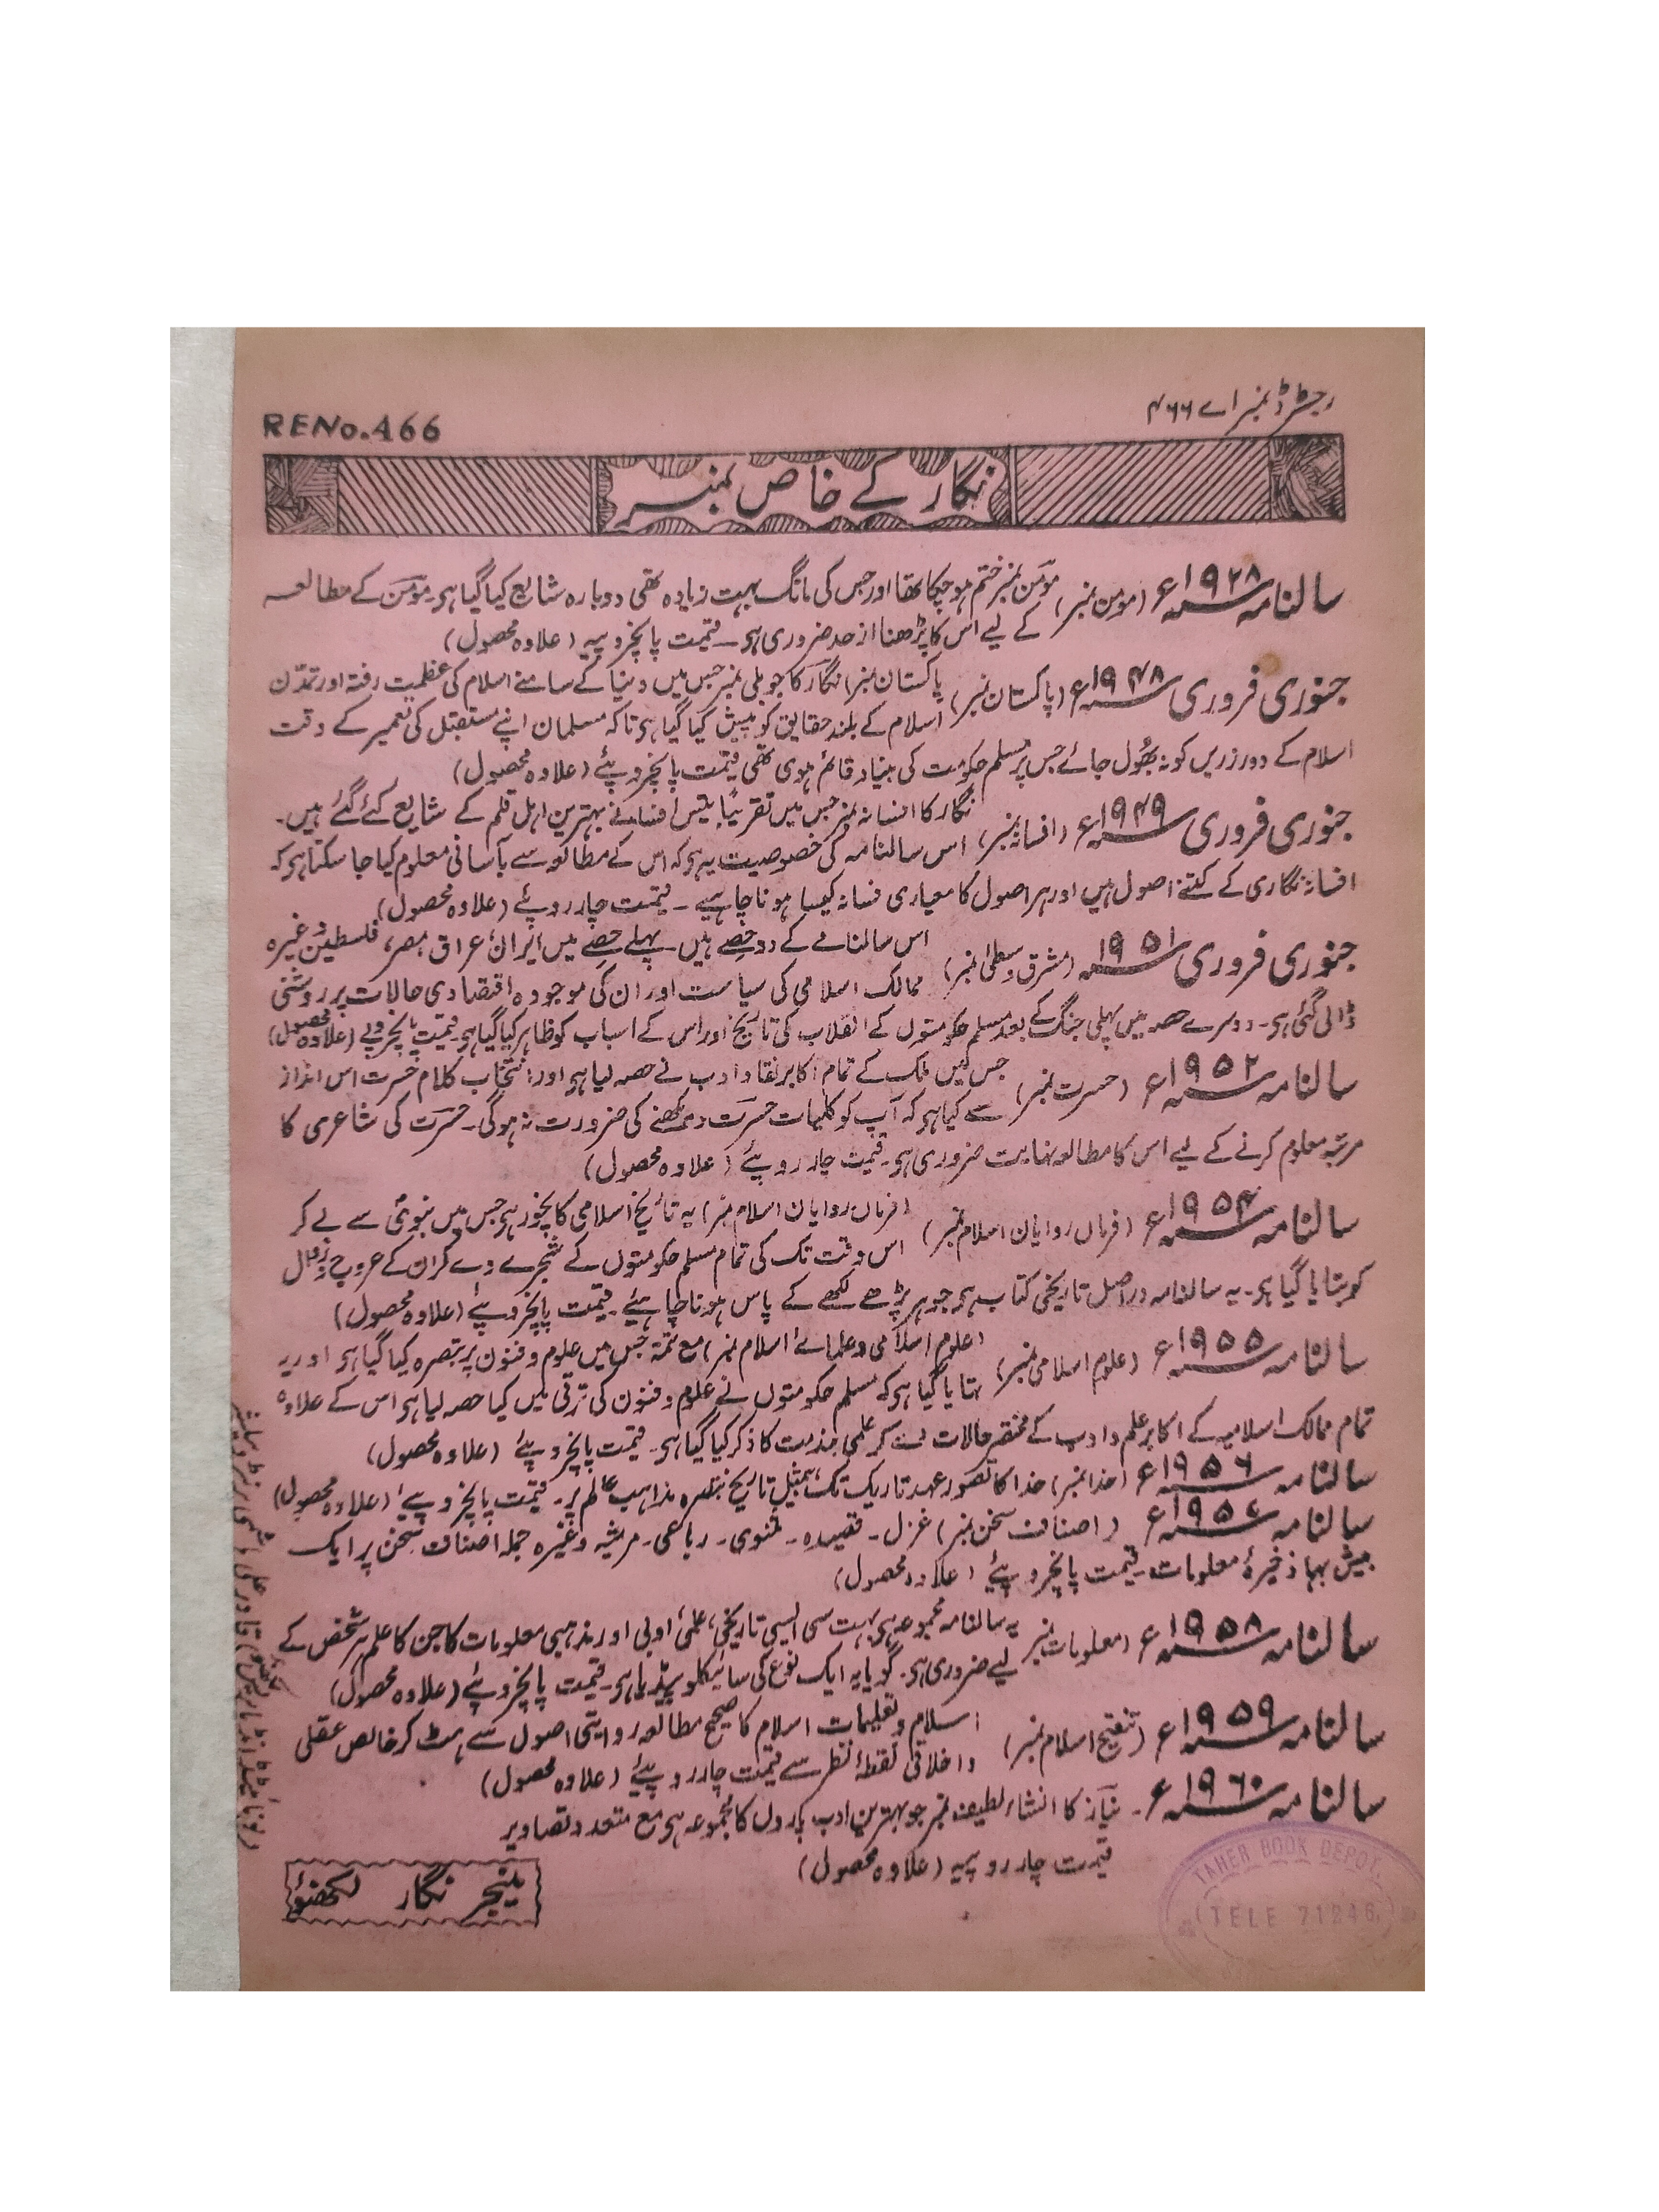 رجسٹرڈ نمبر اے ۴۶۶
RENo.466
نگار کے خاص نمبر
سالنامہ ۱۹۲۸ء (مومن نمبر) مومن نمبر ختم ہوچکا تھا اور جس کی مانگ بہت زیادہ تھی دوبارہ شایع کیا گیا ہو۔ مومن کے مطالعہ
کے لیے اس کا پڑھنا از حد ضروری ہو۔ قیمت پانچروپیہ (علاوہ محصول)
جنوری فروری ۱۹۴۸ء (پاکستان نمبر) پاکستان نمبر) نگار کا جوبلی نمبر جس میں دنیا کے سامنے اسلام کی عظمت رفتہ اور تمدّن
اسلام کے بلند حقایق کو پیش کیا گیا ہو تاکہ مسلمان اپنے مستقبل کی تعمیر کے وقت
اسلام کے دور زریں کو نہ بھُول جائے جس پر مسلم حکومت کی بنیاد قائم ہوی تھی قیمت پانچروپئے (علاوہ محصول)
جنوری فروری ۱۹۴۹ء (افسانہ نمبر) نگار کا افسانہ نمبر جس میں تقریباً بیس افسانے بہترین اہل قلم کے شایع کئے گئے ہیں۔
اس سالنامہ کی خصوصیت یہ ہو کہ اس کے مطالعہ سے بآسانی معلوم کیا جا سکتا ہو کہ
افسانہ نگاری کے کتنے اصول ہیں اور ہر اصول کا معیاری فسانہ کیسا ہونا چاہیے ۔ قیمت چار روپئے (علاوہ محصول)
جنوری فروری ۱۹۵۱ (مشرق وسطی نمبر) اس سالنامے کے دو حصے ہیں۔ پہلے حصے میں ایران، عراق، مصر، فلسطین وغیرہ
ممالک اسلامی کی سیاست اور ان کی موجودہ اقتصادی حالات پر روشنی
ڈالی گئی ہو۔ دوسرے حصہ میں پہلی جنگ کے بعد مسلم حکومتوں کے انقلاب کی تاریخ اور اس کے اسباب کو ظاہر کیا گیا ہو۔ قیمت پانچروپے (علاوہ محصول)
سالنامہ ۱۹۵۲ء (حسرت نمبر) جس میں ملک کے تمام اکابر نقاد ادب نے حصہ لیا ہو اور انتخاب کلام حسرت اس انداز
سے کیا ہو کہ آپ کو کلیات حسرت دیکھنے کی ضرورت نہ ہوگی۔ حسرت کی شاعری کا
مرتبہ معلوم کرنے کے لیے اس کا مطالعہ نہایت ضروری ہو۔ قیمت چار روپئے (علاوہ محصول)
سالنامہ ۱۹۵۴ء (فرماں روایان اسلام نمبر) (فرماں روایان اسلام نمبر) یہ تاریخ اسلامی کا نچوڑ ہو جس میں نبویؐ سے لے کر
اس وقت تک کی تمام مسلم حکومتوں کے شجرے دے کر ان کے عروج و زوال
کو بتایا گیا ہو۔ یہ سالنامہ دراصل تاریخی کتاب ہو جو ہر پڑھے لکھے کے پاس ہونا چاہیئے۔ قیمت پانچروپئے (علاوہ محصول)
سالنامہ ۱۹۵۵ء (علوم اسلامی نمبر) (علوم اسلامی و علمائے اسلام نمبر) مع تتمہ جس میں علوم و فنون پر تبصرہ کیا گیا ہو اور یہ
بتایا گیا ہو کہ مسلم حکومتوں نے علوم و فنون کی ترقی میں کیا حصہ لیا ہو اس کے علاوہ
تمام ممالک اسلامیہ کے اکابر علم و ادب کے مختصر حالات کر علمی خدمت کا ذکر کیا گیا ہو۔ قیمت پانچروپئے (علاوہ محصول)
سالنامہ ۱۹۵۶ء (خدا نمبر) خدا کا تصور عہد تاریک تک، بے مثل تاریخ تبصرہ مذاہب عالم پر۔ قیمت پانچروپیے (علاوہ محصول)
سالنامہ ۱۹۵۷ء (اصناف سخن نمبر) غزل۔ قصیدہ۔ مثنوی۔ رباعی۔ مرثیہ وغیرہ جملہ اصناف سخن پر ایک
بیش بہا ذخیرۂ معلومات۔ قیمت پانچروپئے (علاوہ محصول)
سالنامہ ۱۹۵۸ء (معلومات نمبر) یہ سالنامہ مجموعہ ہو بہت سی ایسی تاریخی، علمی، ادبی اور مذہبی معلومات کا جن کا علم ہر شخص کے
لیے ضروری ہو۔ گویا یہ ایک نوع کی سائیکلوپیڈیا ہو۔ قیمت پانچروپئے (علاوہ محصول)
سالنامہ ۱۹۵۹ء (تنقیح اسلام نمبر) اسلام و تعلیمات اسلام کا صحیح مطالعہ روایتی اصول سے ہٹ کر خالص عقلی
و اخلاقی نقطۂ نظر سے قیمت چار روپئے (علاوہ محصول)
سالنامہ ۱۹۶۰ء ۔ نیاز کا انشاء لطیف نمبر جو بہترین ادب پاروں کا مجموعہ ہو مع متعدد تصاویر
قیمت چار روپیہ (علاوہ محصول)
مینیجر نگار لکھنؤ
TAHER BOOK DEPOT.
TELE 71246.